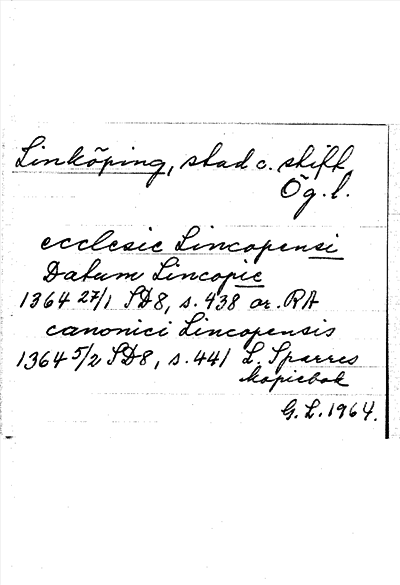 Linköping, stad o. stift
Ög. l.
ecclesie Lincopensi
Datum Lincopie
1364 27/1 SD8, s. 438 or. RA
canonici Lincopensis
1364 5/2 SD8, s. 441 L. Sparres
kopiebok
G. L. 1964.